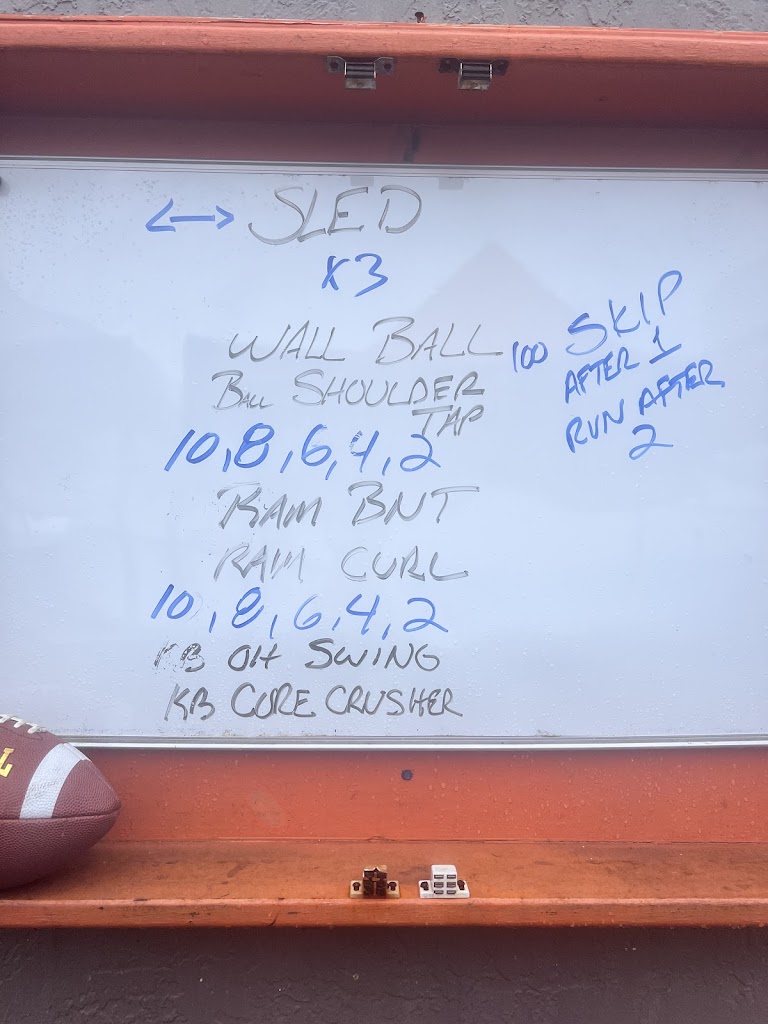 <--> SLED
x3
WALL BALL
BALL SHOULDER
TAP
10, 8, 6, 4, 2
RAM BNT
RAM CURL
10, 8, 6, 4, 2
KB OH SWING
KB CORE CRUSHER
100 SKIP
AFTER 1
RUN AFTER
2
L